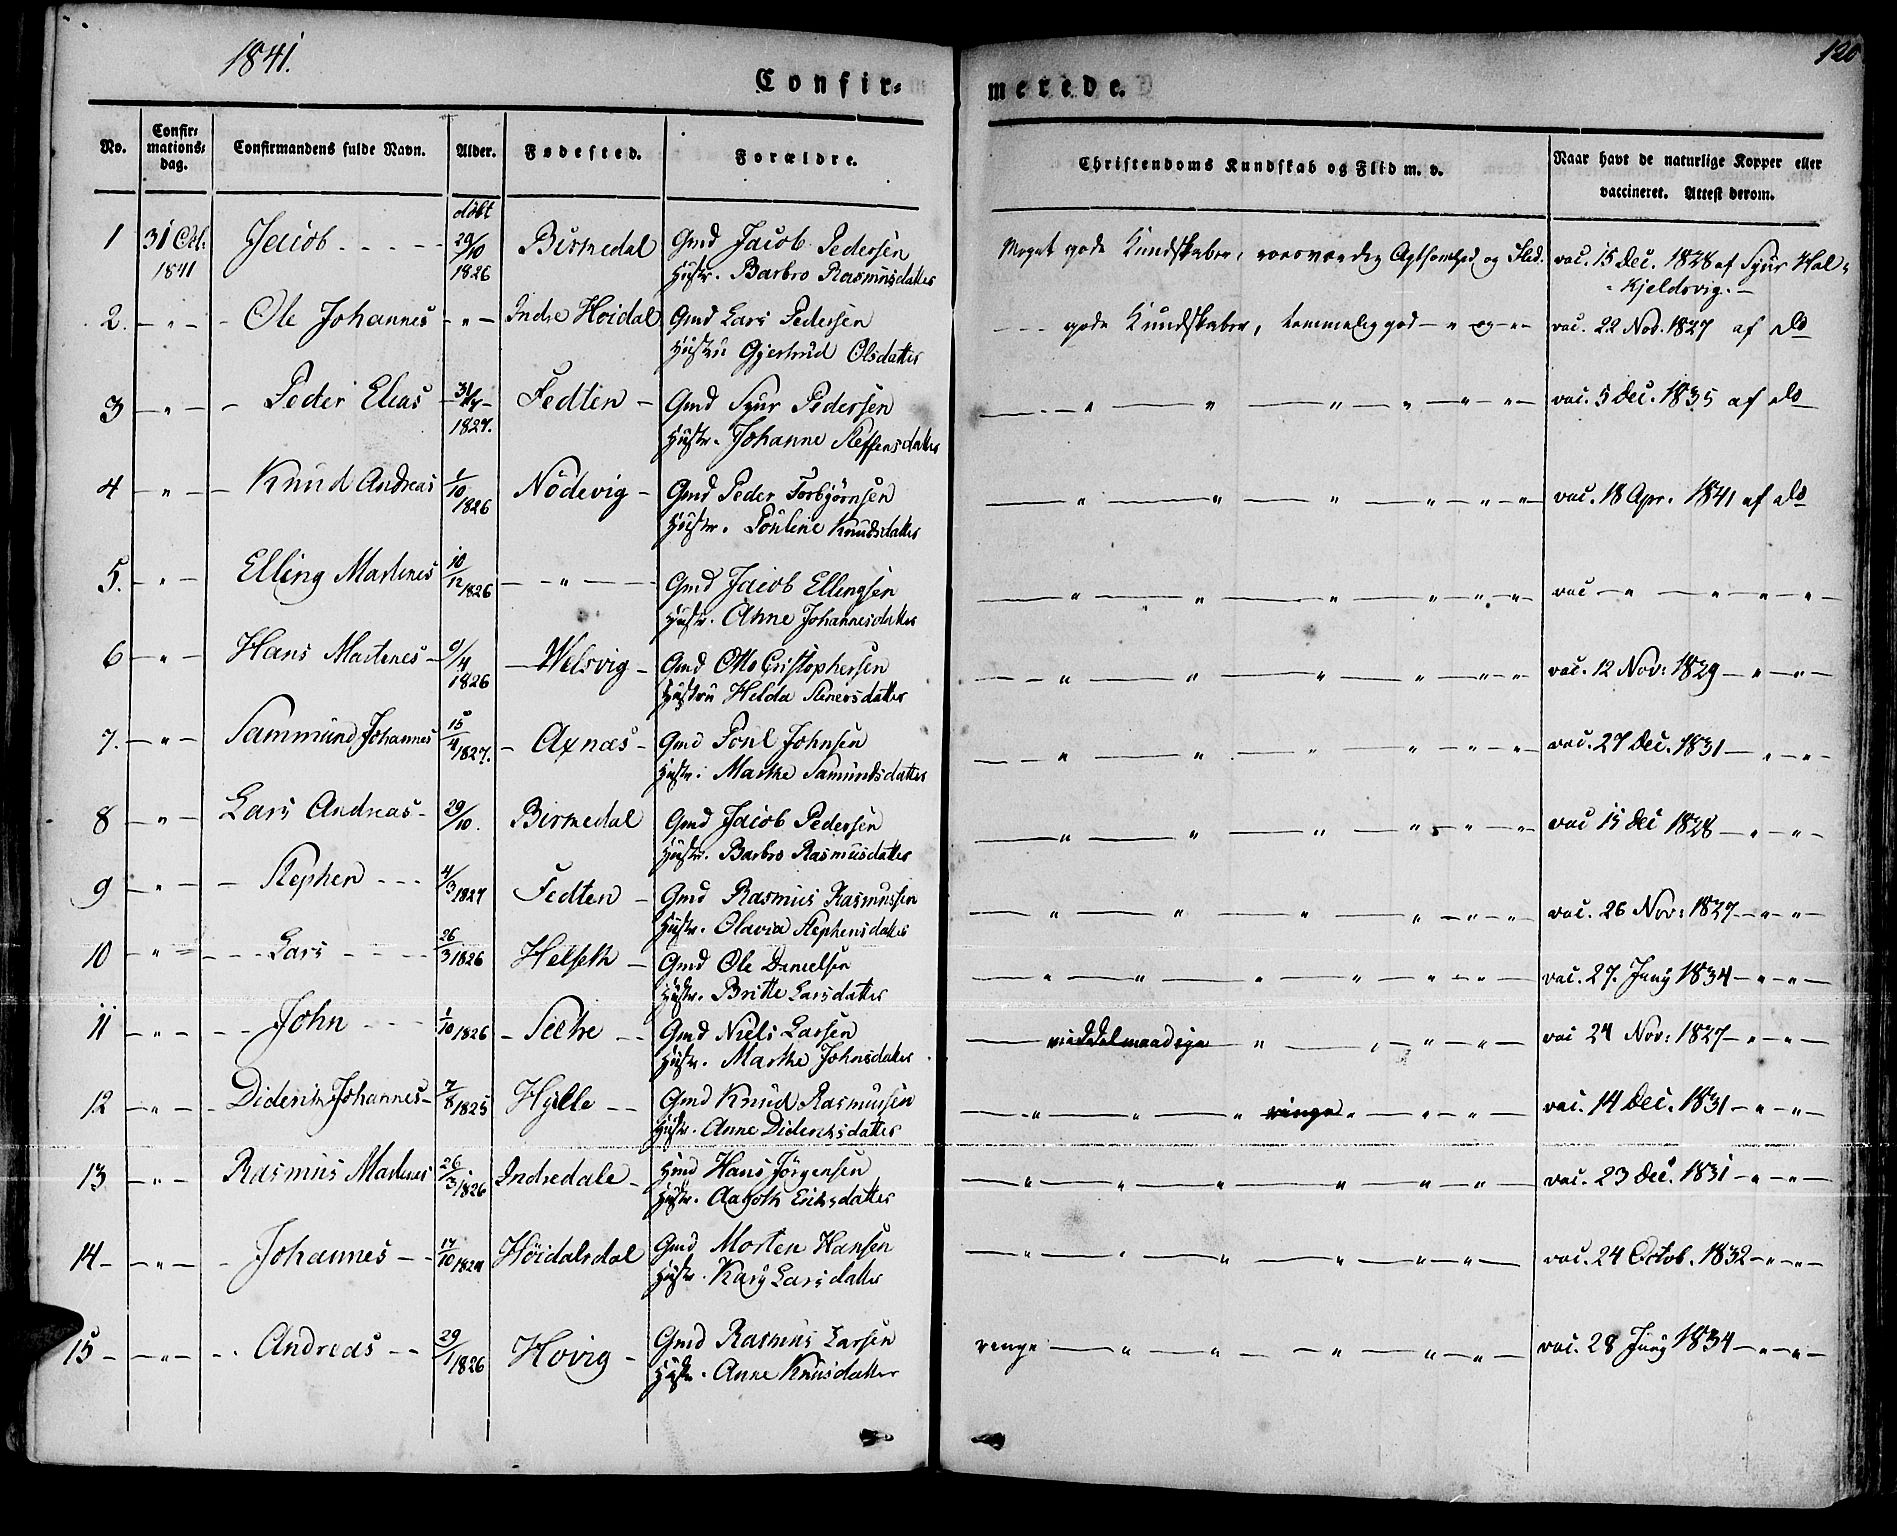 1841.
120
Confir=
merede.
No.
Confir=
mations=
dag.
Confirmandens fulde Navn.
Alder.
Fødested.
Forældre.
Christendoms Kundskab og Flid m. v.
Naar havt de naturlige Kopper eller
vaccineret. Attest derom.
døbt
1 31 Oct. Jacob 29/10 Birkedal Gmd Jacob Pedersen Meget gode Kundskaber, roesværdig Agtsomhed og Flid. vac. 15 Dec. 1828 af Sjur Hal=
1841 1826 Hustr. Barbro Rasmusdatter Kjeldsvig. —
2. — " — Ole Johannes — " — Indre Høidal Gmd Lars Pedersen — gode Kundskaber, temmelig god — " og " — vac. 22 Nov. 1827 af do
Hustru Gjertrud Olsdatter
3 — " — Peder Elias 31/4 Fedten — Gmd Sjur Pedersen — " — " — " — " — " — " — vac. 5 Dec. 1835 af do
1827. Hustr. Johanne Steffensdatter
4 — " — Knud Andreas 1/10 Nödevig — Gmd Peder Torbjörnsen — " — " — " — " — " — " — vac. 18 Apr. 1841 af do
1826 Hustr. Pouline Knudsdatter
5. — " — Elling Martines 10/12 1826 — " — Gmd Jacob Ellingsen — " — " — " — " — " — " — vac — " — " — " — " —
Hustr. Anne Johannesdatter
6 — " — Hans Martenes 9/4 Welsvig — Gmd Otto Cristophersen — " — " — " — " — " — " — vac. 12 Nov: 1829 — " — " —
1826 Hustru Helda Stenersdatter
7. — " — Sammund Johannes 15/4 1827. — Axnæs — Gmd Poul Johnsen — " — " — " — " — " — " — vac. 27 Dec. 1831 — " — " —
Hustr. Marthe Samundsdatter
8 — " — Lars Andreas 29/10. Birkedal Gmd Jacob Pedersen — " — " — " — " — " — " — vac 15 Dec 1828 — " — " —
Hustr. Barbro Rasmusdatter
9 — " — Stephen 4/3 1827 Fedten — Gmd Rasmus Rasmussen — " — " — " — " — " — " — vac. 26 Nov: 1827 — " — " —
Hustr. Olavia Stephensdatter
10 — " — Lars 26/3 1826 Helseth — Gmd Ole Danielsen — " — " — " — " — " — " — vac. 27. Juny 1834 — " — " —
Hustr. Britte Larsdatter
11 — " — John 1/10 1826 — Sætre — Gmd Niels Larsen — middelmaadige — " — " — " — vac 24 Nov: 1827 — " — " —
Hustr. Marthe Johnsdatter
12 — " — Diderik Johannes 7/8 1825 Hylle — Gmd Knud Rasmussen — " — " — " ringe " — " — " — vac. 14 Dec. 1831 — " — " —
Hustr. Anne Dideriksdatter
13 — " — Rasmus Martines 26/3 1826 Indredale — Hmd Hans Jörgensen — " — " — " — " — " — " — vac. 23 Dec. 1831 — " — " —
Hustr. Aagoth Eriksdatter
14 — " — Johannes 17/10 1824 Höidalsdal Gmd Morten Hansen — " — " — " — " — " — " — vac. 24 Octob. 1832 — " — " —
Hustr. Kary Larsdatter
15 — " — Andreas 29/1 1826 Hovig — Gmd Rasmus Larsen ringe — " — " — " — " — " — vac. 28 Juny 1834 — " — " —
Hustr. Anne Knusdatter